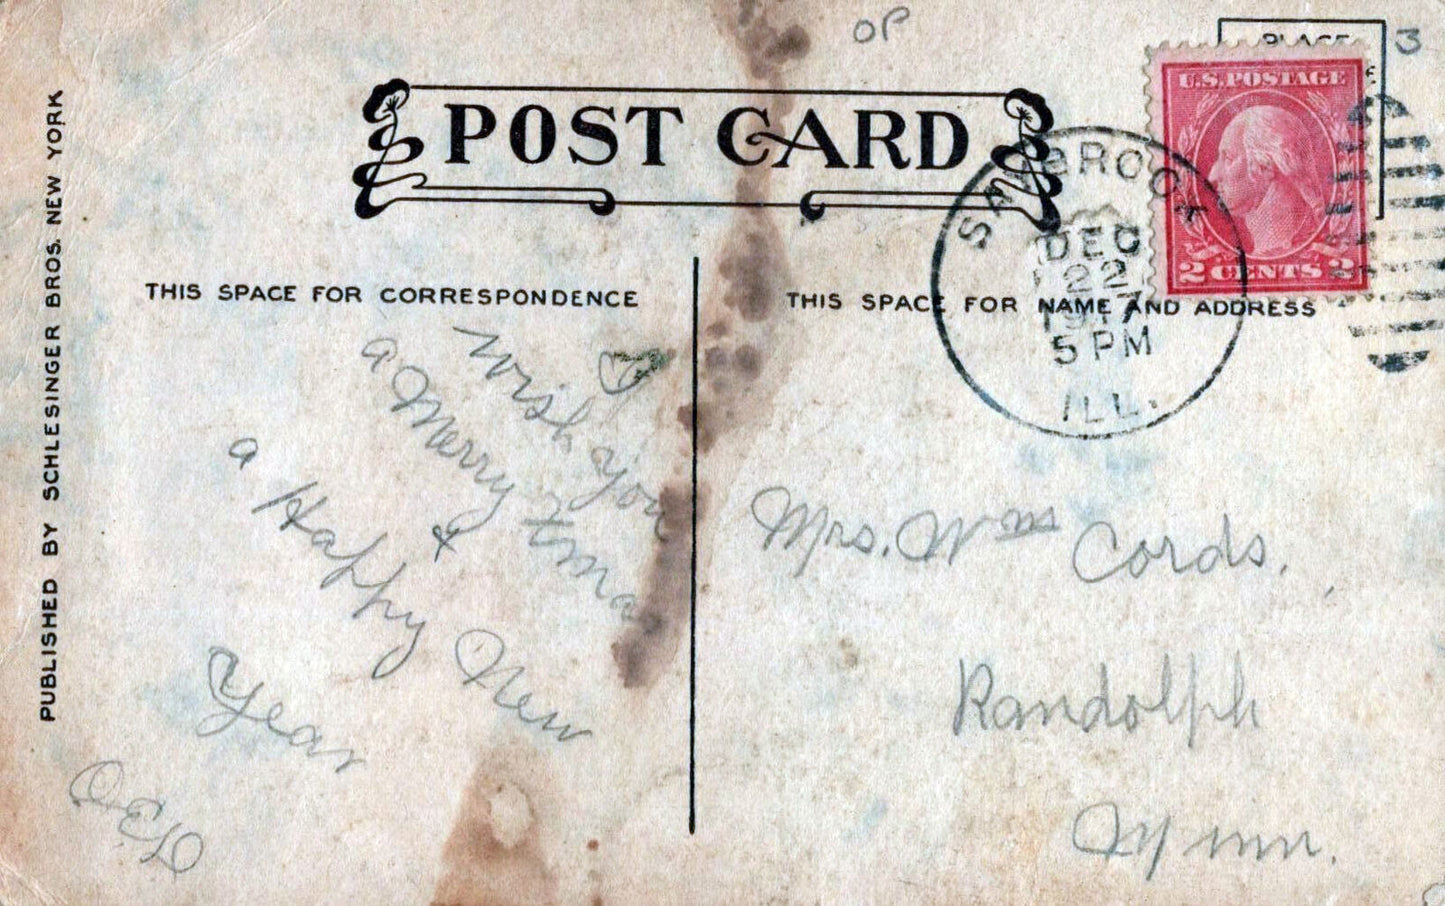 OP
3
PLACE
POST CARD
U.S. POSTAGE
2 CENTS 2
DEC
22
1917
5 PM
ILL.
THIS SPACE FOR CORRESPONDENCE
THIS SPACE FOR NAME AND ADDRESS
I
Wish you
a Merry Xmas
&
a Happy New
Year
Mrs. Wm Cords.
Randolph
Minn.
PUBLISHED BY SCHLESINGER BROS. NEW YORK